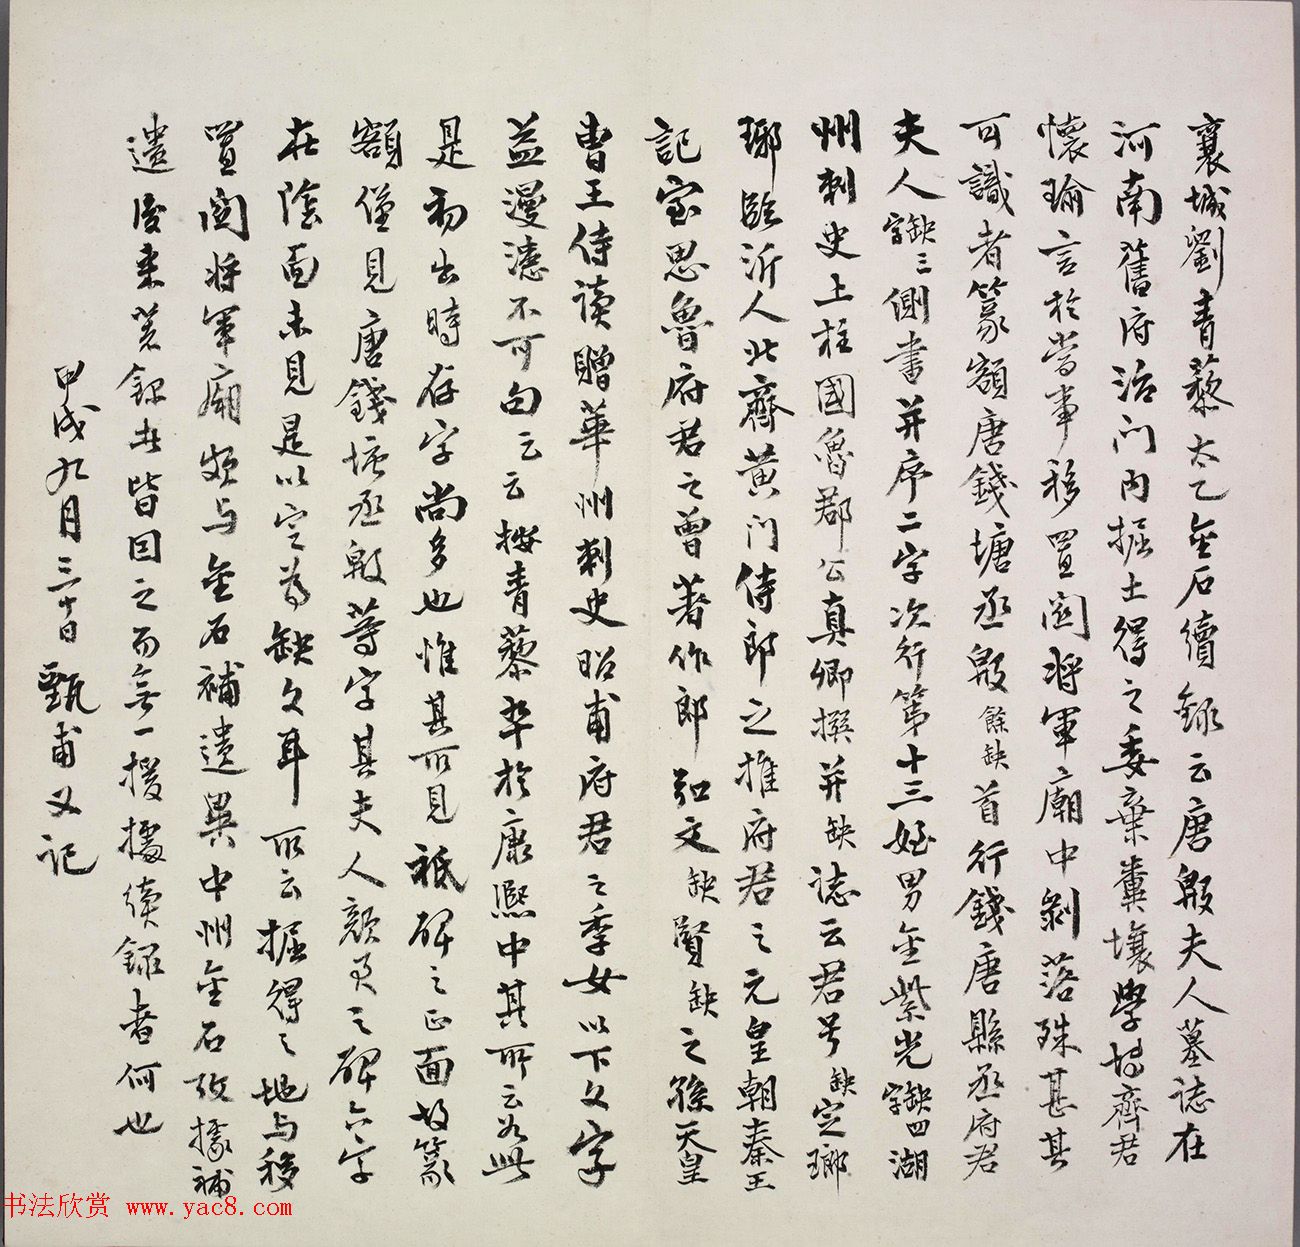 襄城劉青藜太乙金石續錄云唐殷夫人墓誌在
河南舊府治門内掘土得之委棄糞壤學博齊君
懷瑜言於當事移置関將軍廟中剝落殊甚其
可識者篆額唐錢塘丞殷餘缺首行錢唐縣丞府君
夫人缺三字側書并序二字次行第十三姪男金紫光缺四字湖
州刺史上柱國魯郡公真卿撰并缺誌云君号缺定瑯
琊臨沂人北齊黄门侍郎之推府君之元皇朝秦王
記室思魯府君之曾著作郎弘文缺賢缺之孫天皇
曹王侍读贈華州刺史昭甫府君之季女以下文字
益漫漶不可句云云按青藜卒於康熙中其所云如此
是初出時存字尚多也惟其所見祗碑之正面故篆
額僅見唐錢塘丞殷等字其夫人顏君之碑六字
在陰面未見是以定為缺文耳所云掘得之地与移
置関将軍廟頗与金石補遺異中州金石攷據補
遺後来著錄者皆因之而無一援據續錄者何也
甲戌九月三十日甄甫又记
书法欣赏 www.yac8.com